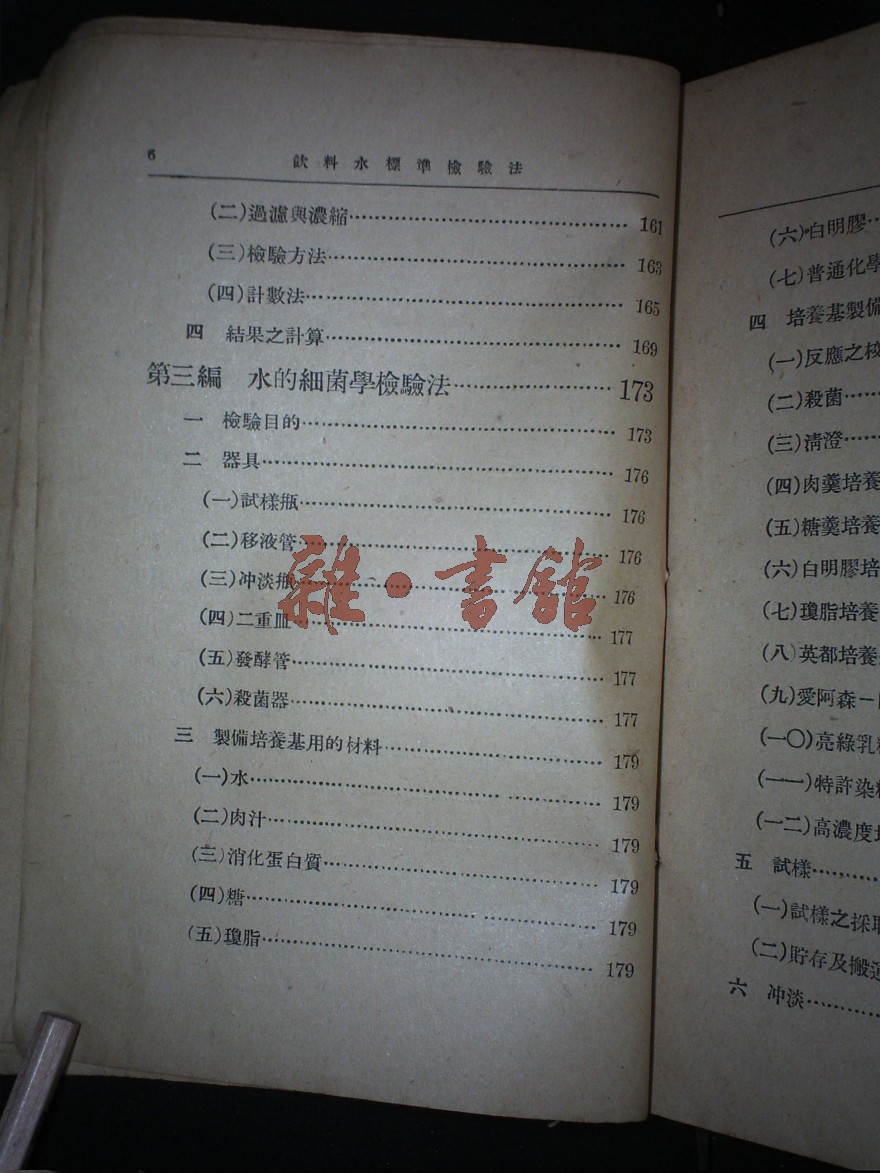 6 飲料水標準檢驗法
(二)過濾與濃縮 161
(三)檢驗方法 163
(四)計數法 165
四 結果之計算 169
第三編 水的細菌學檢驗法 173
一 檢驗目的 173
二 器具 176
(一)試樣瓶 176
(二)移液管 176
(三)冲淡瓶 176
(四)二重皿 177
(五)發酵管 177
(六)殺菌器 177
三 製備培養基用的材料 179
(一)水 179
(二)肉汁 179
(三)消化蛋白質 179
(四)糖 179
(五)瓊脂 179
雜·書館
(六)白明膠
(七)普通化學
四 培養基製備
(一)反應之校
(二)殺菌
(三)清澄
(四)肉羹培養
(五)糖羹培養
(六)白明膠培
(七)瓊脂培養
(八)英都培養
(九)愛阿森—
(一〇)亮綠乳
(一一)特許染
(一二)高濃度
五 試樣
(一)試樣之採取
(二)貯存及搬運
六 冲淡